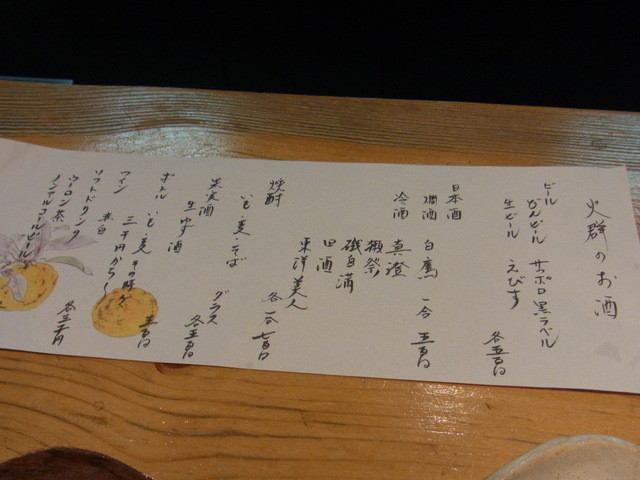 火群のお酒
ビール びんビール サッポロ黒ラベル
生ビール えびす
各五百円
日本酒
燗酒 白鷹 一合 五百円
冷酒 真澄
獺祭
磯自満
田酒
東洋美人
焼酎 いも・麦・そば
各一合 七百円
果実酒 グラス
生ゆず酒 各五百円
ボトル いも・麦 その時々
三千円から〜
ワイン 赤白
ソフトドリンク
ウーロン茶
ノンアルコールビール